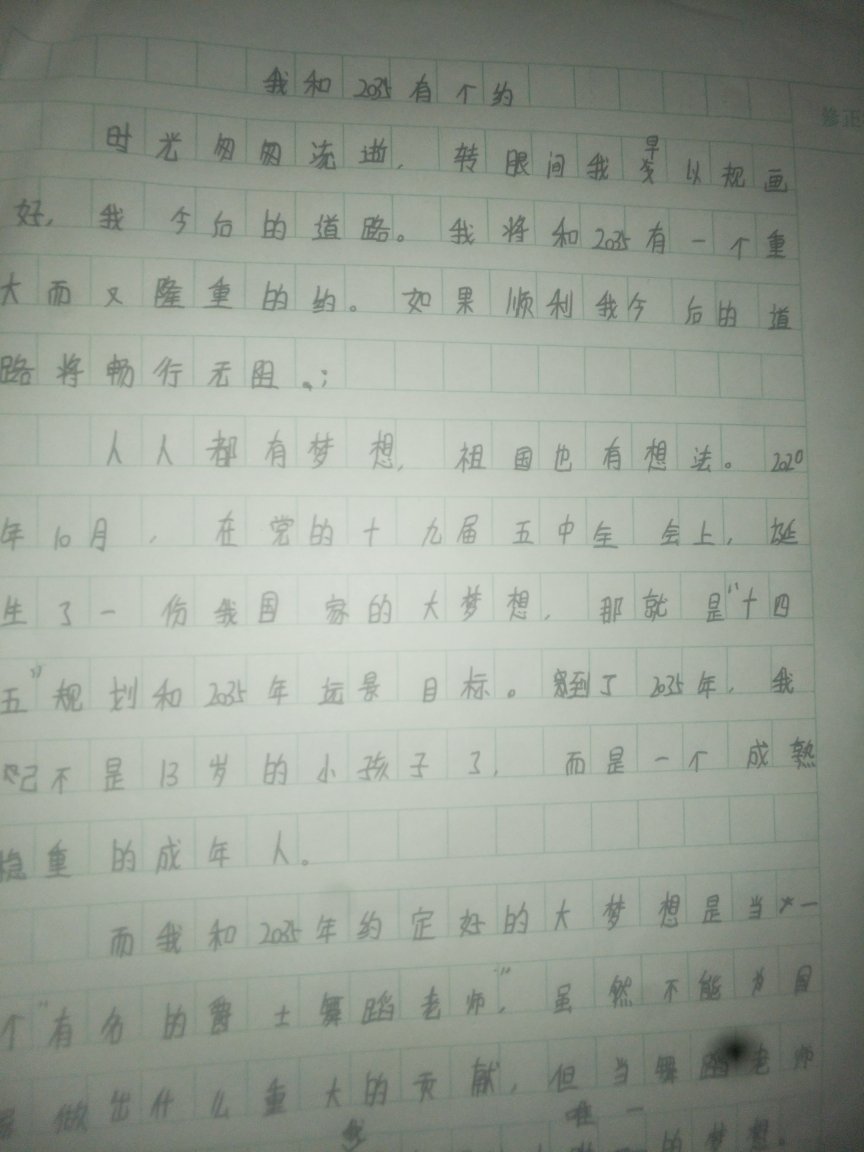 我和2035有个约
修正
时光匆匆流逝,转眼间我早以规画
好,我今后的道路。我将和2035有一个重
大而又隆重的约。如果顺利我今后的道
路将畅行无阻。;
人人都有梦想,祖国也有想法。2020
年10月,在党的十九届五中全会上,诞
生了一份我国家的大梦想,那就是"十四
五"规划和2035年远景目标。到了2035年,我
已不是13岁的小孩子了,而是一个成熟
稳重的成年人。
而我和2035年约定好的大梦想是当一
个"有名的爵士舞蹈老师",虽然不能为国
家做出什么重大的贡献,但当舞蹈老师
唯一
的梦想。